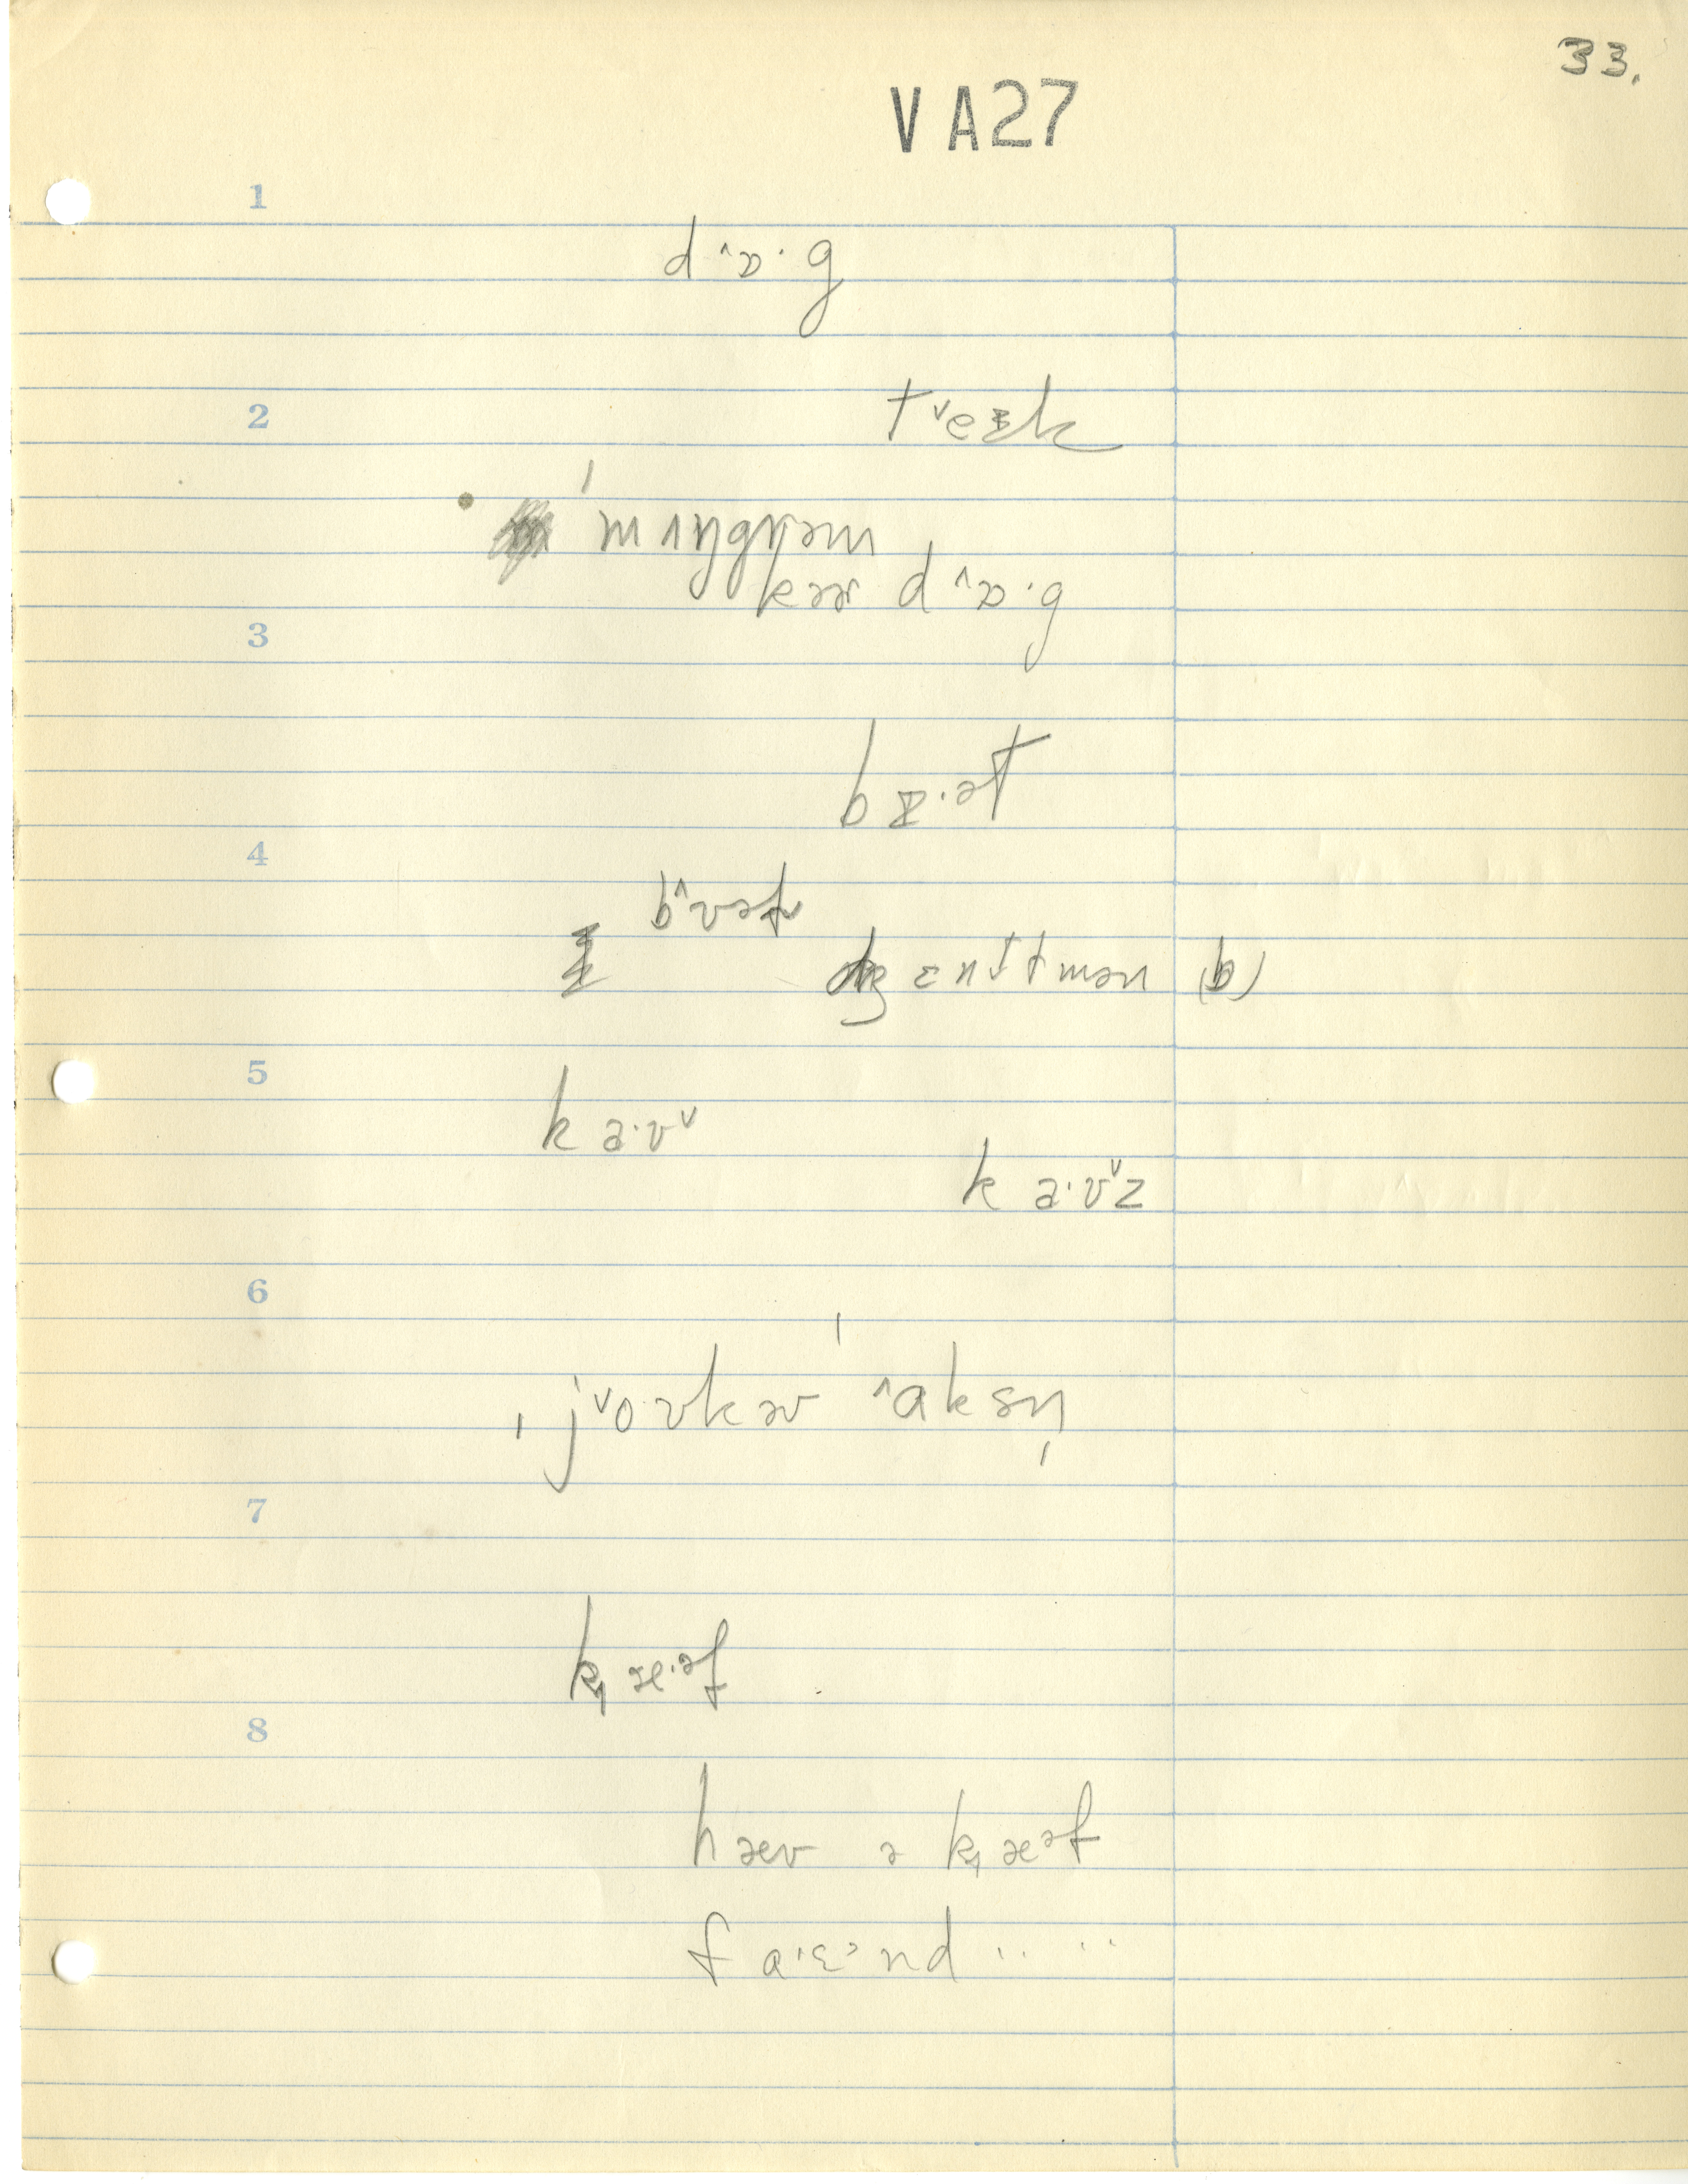 33.
V A27
1
d ˄ɒ· g
2
t ˅eɪk
ˈmʌŋgɹəm
kəɚ d ˄ɒ· g
3
b ɪ·ət
4
b˄ʊəɫ
dʒɛnt̬tmən (b)
5
k a·ʊ˅
k a·ʊ˅z
6
ˌj˅o·ʊkəʊ ˄aksn̩
7
k̟ æ·əf
8
hæv ə k̟æəf
f a·ɛ˃nd ·· ··